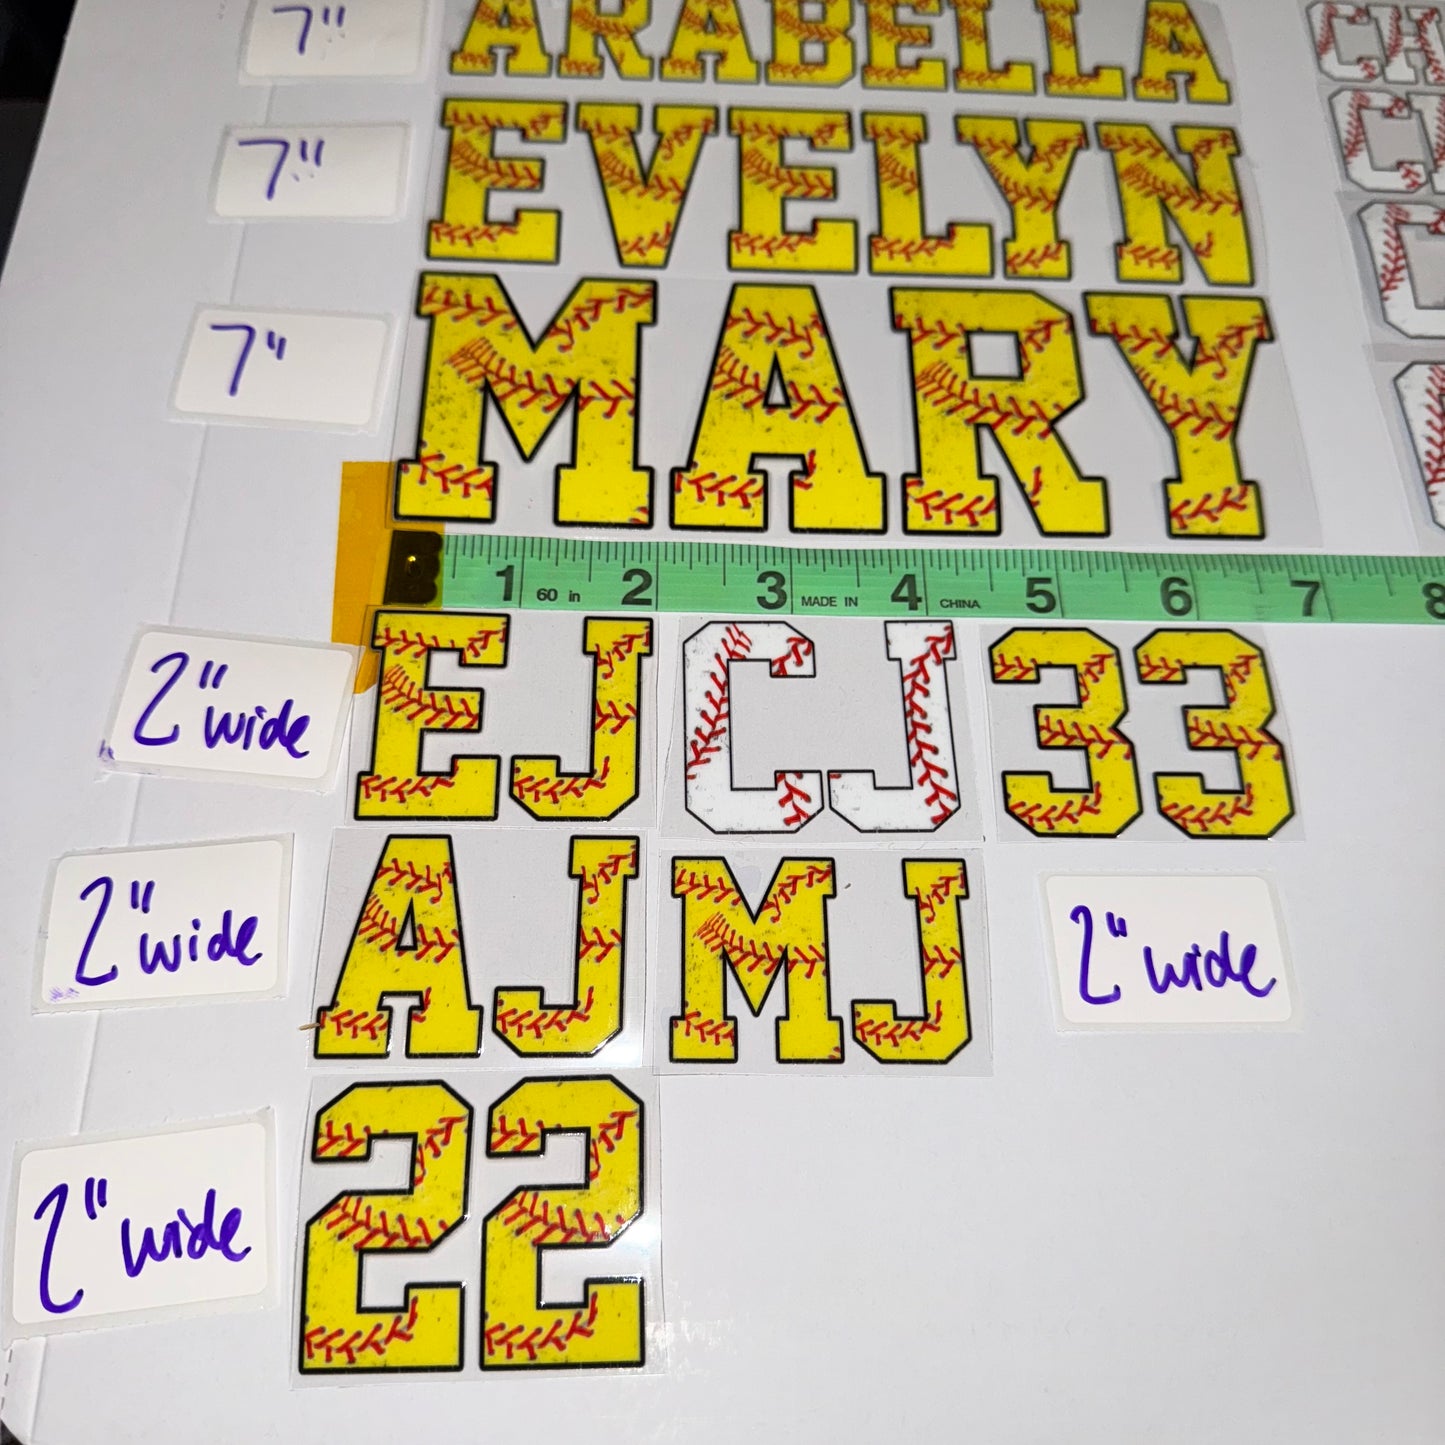 7"
ARABELLA
CH
7"
EVELYN
7"
MARY
1 60 in 2 3 MADE IN 4 CHINA 5 6 7 8
2" wide
EJ
CJ
33
2" wide
AJ
MJ
2" wide
2" wide
22